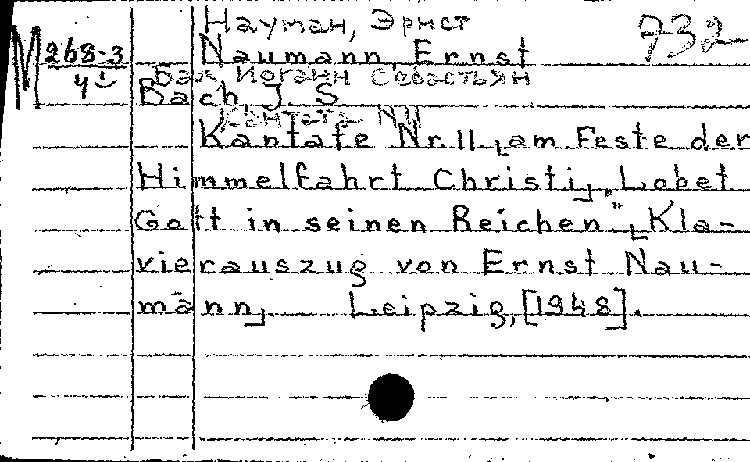 Науман, Эрнст
732
М 268-3
4
Naumann, Ernst
Бах, Иоганн Себастьян
Bach, J. S
Кантата N11
Kantate Nr.11 „am Feste der
Himmelfahrt Christi„ „Lobet
Gott in seinen Reichen", Kla-
vierauszug von Ernst Nau-
mann„ Leipzig, [1948].